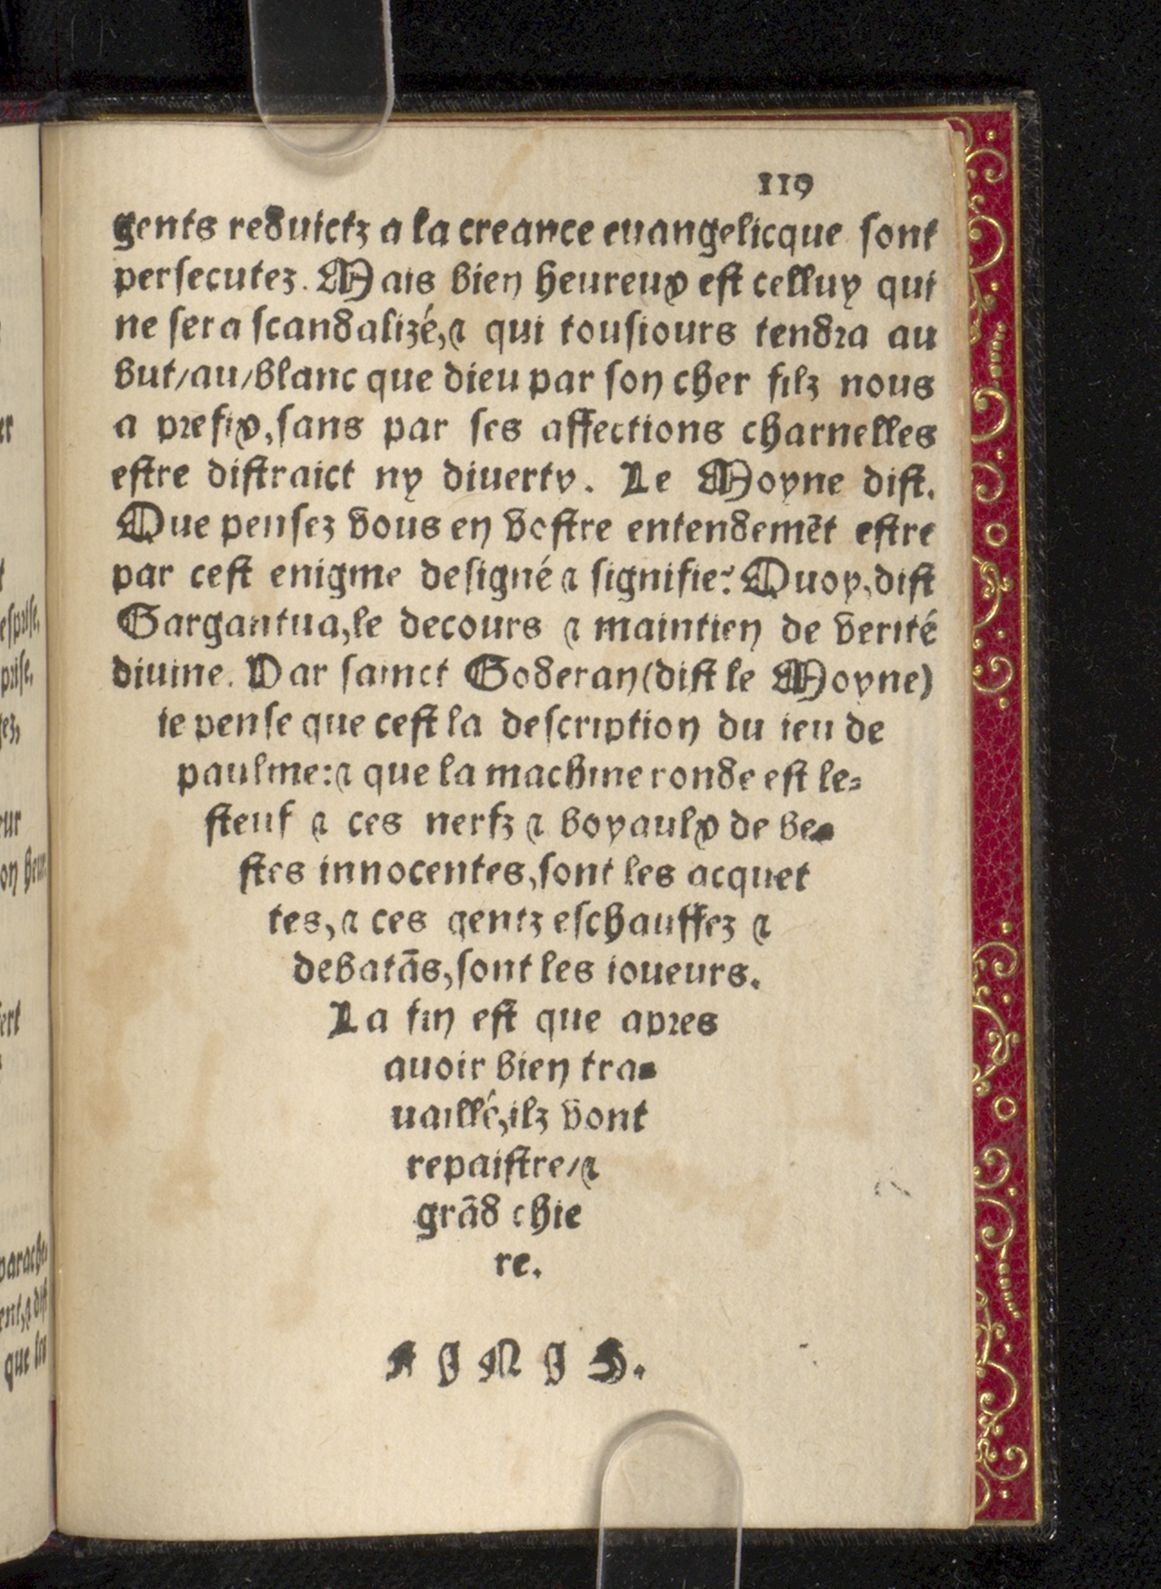 119
gents reduictz a la creance euangelicque sont
persecutez. Mais bien heureux est celluy qui
ne sera scandalizé, ⁊ qui tousiours tendra au
but/au/blanc que dieu par son cher filz nous
a prefix, sans par ses affections charnelles
estre distraict ny diuerty. Le Moyne dist.
Que pensez vous en vostre entendemẽt estre
par cest enigme designé ⁊ signifie? Quoy, dist
Gargantua, le decours ⁊ maintien de verité
diuine. Par sainct Goderan (dist le Moyne)
ie pense que cest la description du ieu de
paulme: ⁊ que la machine ronde est le-
steuf ⁊ ces nerfz ⁊ boyaulx de be-
stes innocentes, sont les acquet
tes, ⁊ ces gentz eschauffez ⁊
debatãs, sont les ioueurs.
La fin est que apres
auoir bien tra-
uaillé, ilz vont
repaistre/⁊
grãd chie
re.
FINIS.